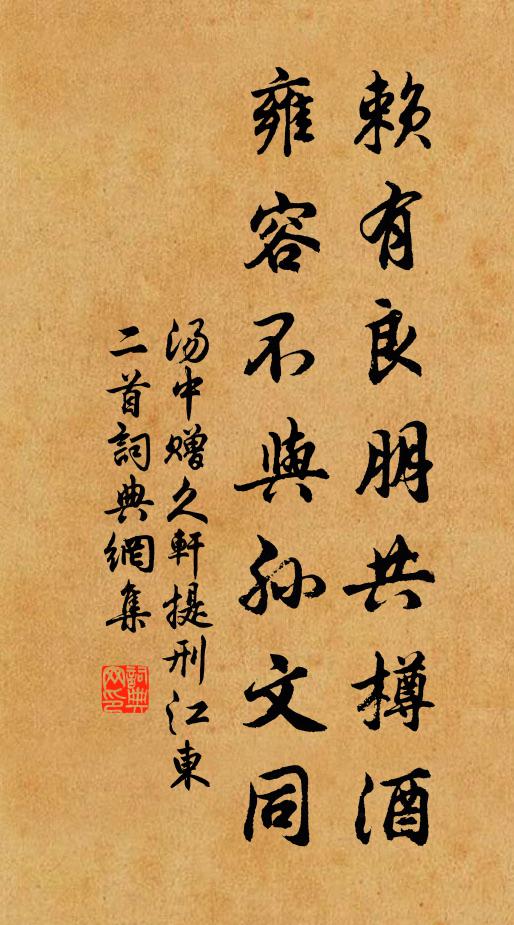 赖有良朋共樽酒
雍容不與孙文同
汤中赠久軒提刑江東
二首詞典網集
詞典
网印